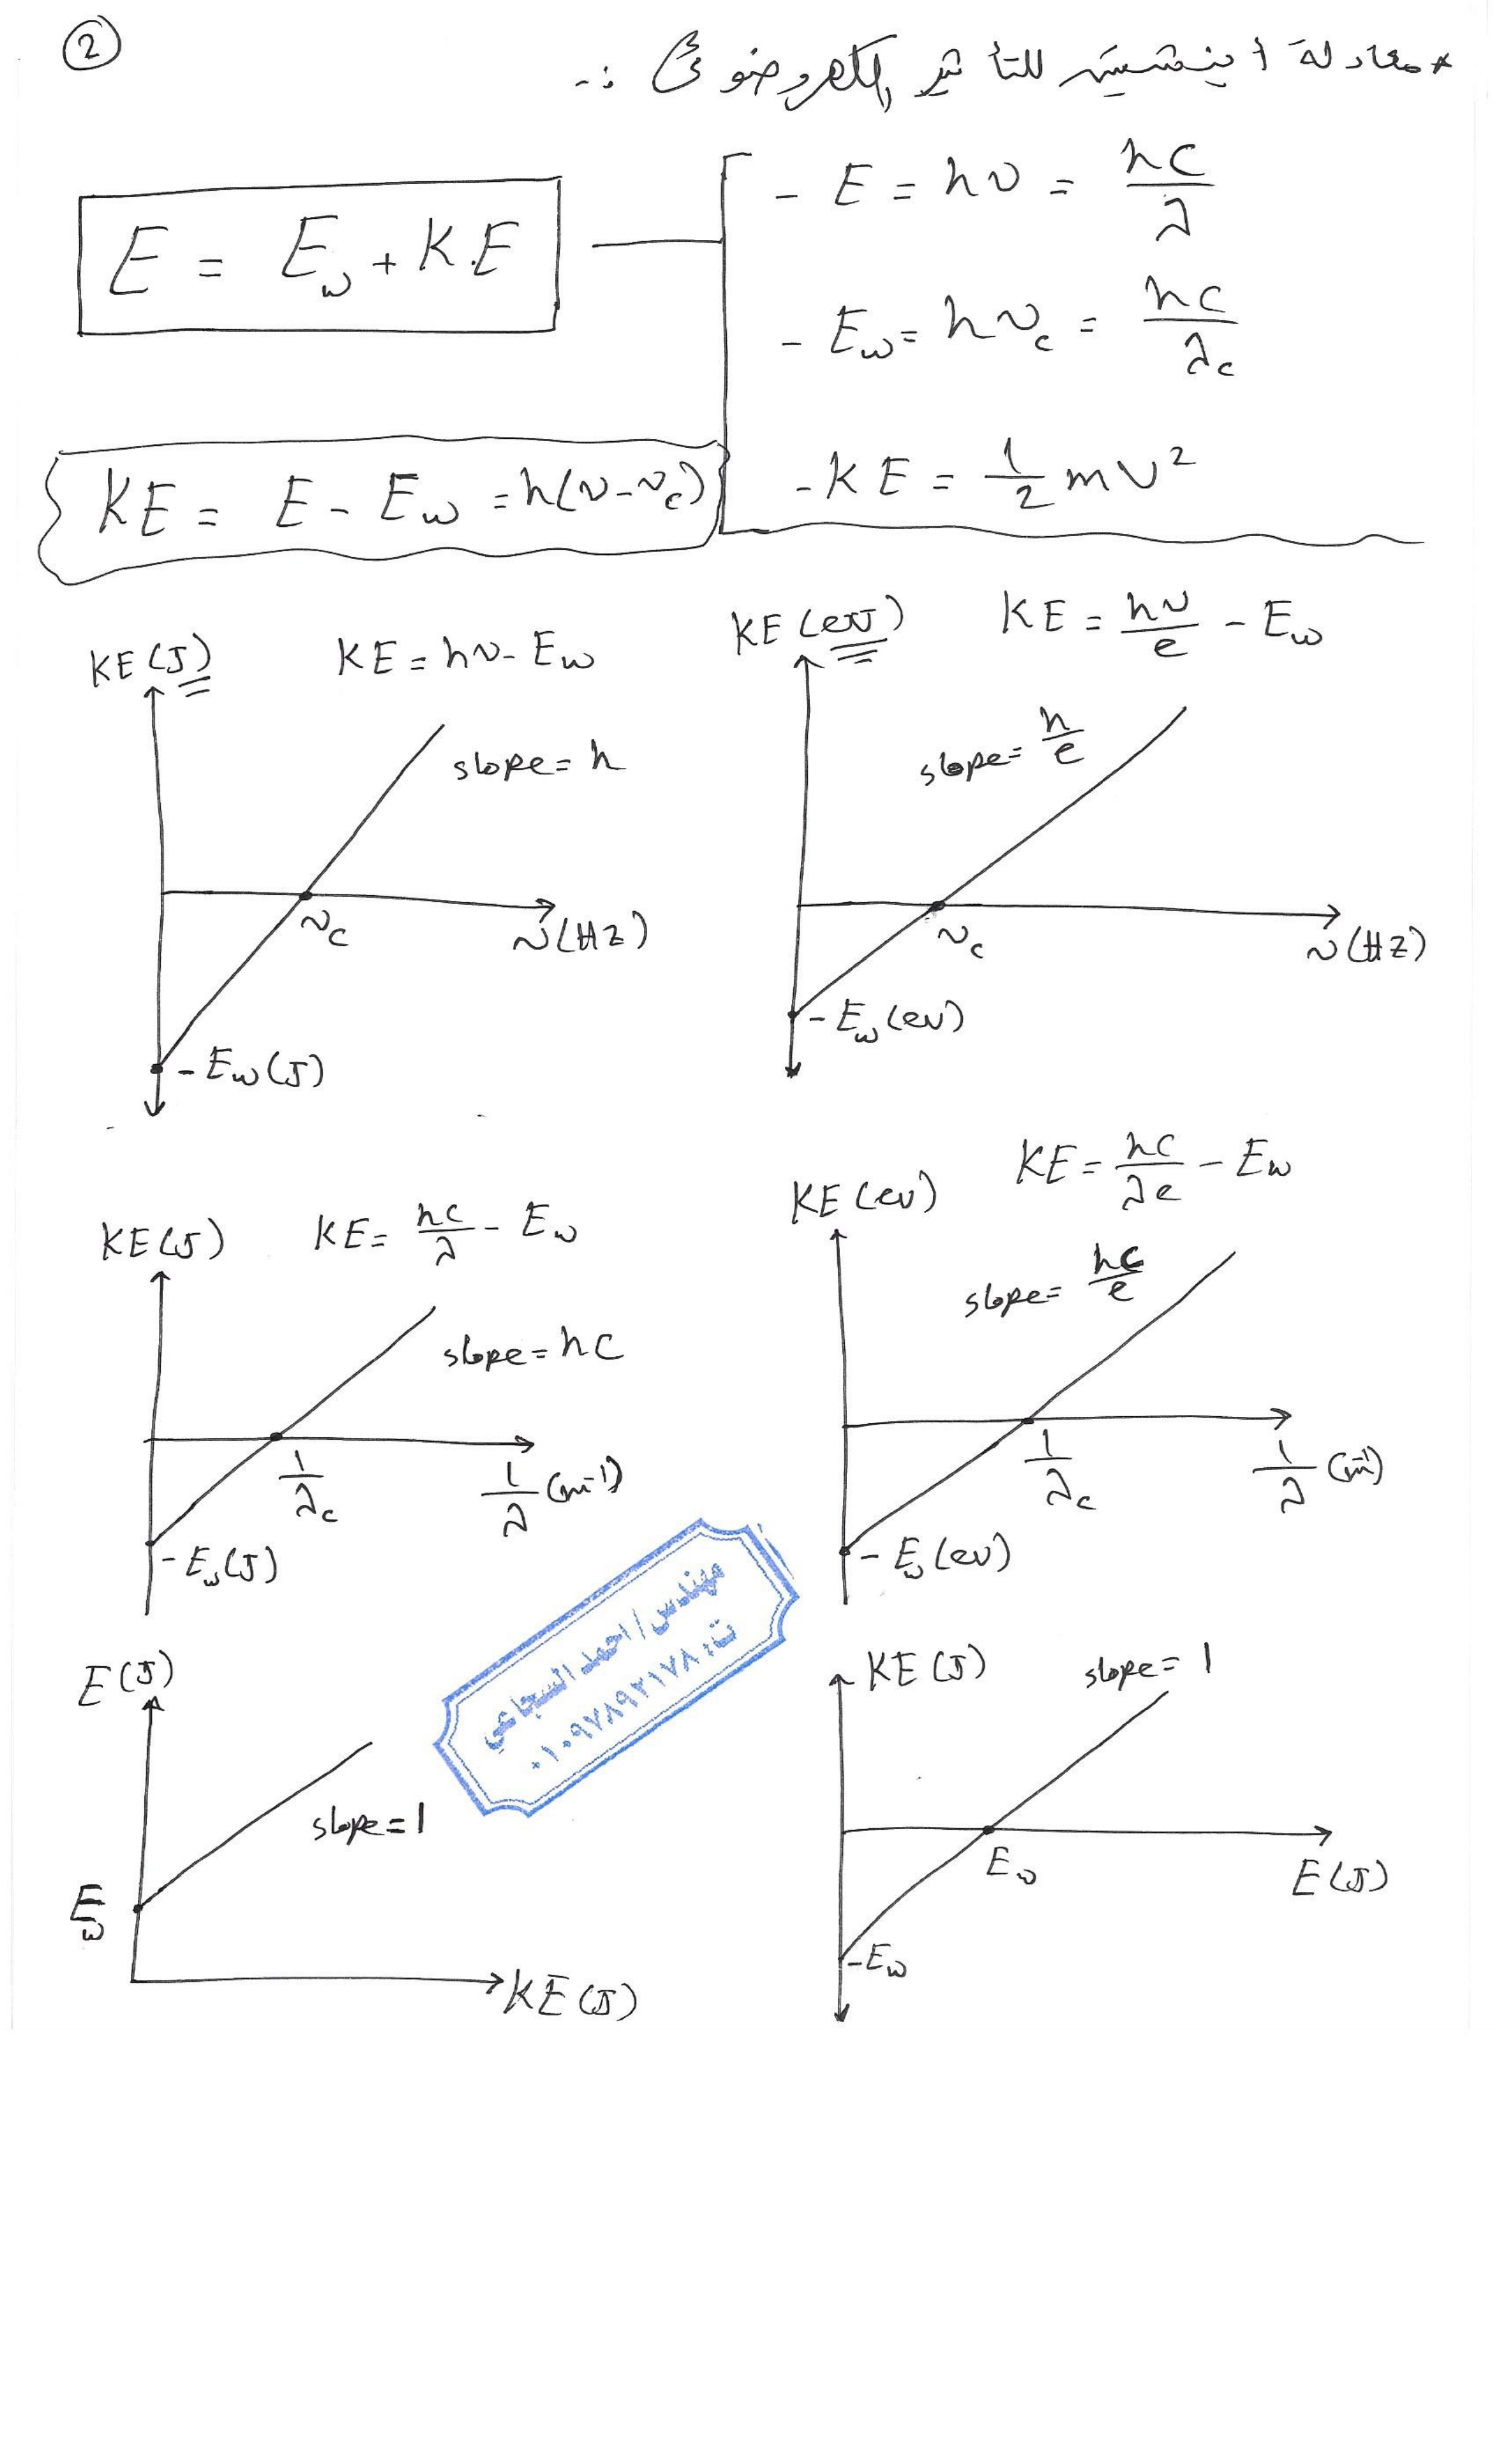 2
* معادلة أينشتين للتأثير الكهروضوئى :-
E = E_w + K.E
- E = hν = hc/λ
- E_w = hν_c = hc/λ_c
- KE = 1/2 mv²
KE = E - E_w = h(ν-ν_c)
KE (J) KE = hν - E_w
slope = h
ν_c
ν (Hz)
- E_w (J)
KE (ev) KE = hν/e - E_w
slope = h/e
ν_c
ν (Hz)
- E_w (ev)
KE (J) KE = hc/λ - E_w
slope = hc
1/λ_c
1/λ (m⁻¹)
- E_w (J)
KE (ev) KE = hc/λe - E_w
slope = hc/e
1/λ_c
1/λ (m⁻¹)
- E_w (ev)
مهندس/ احمد السجاعي
ت: ٠١٠٩٧٨٩٢١٧٨
E (J)
slope = 1
E_w
KE (J)
KE (J) slope = 1
E_w
E (J)
-E_w